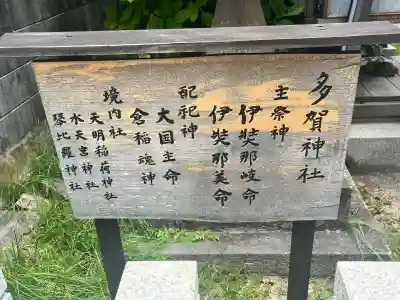 多賀神社
主祭神
伊奘那岐命
伊奘那美命
配祀神
大国主命
倉稲魂神
境内社
天明稲荷神社
水天宮神社
琴比羅神社